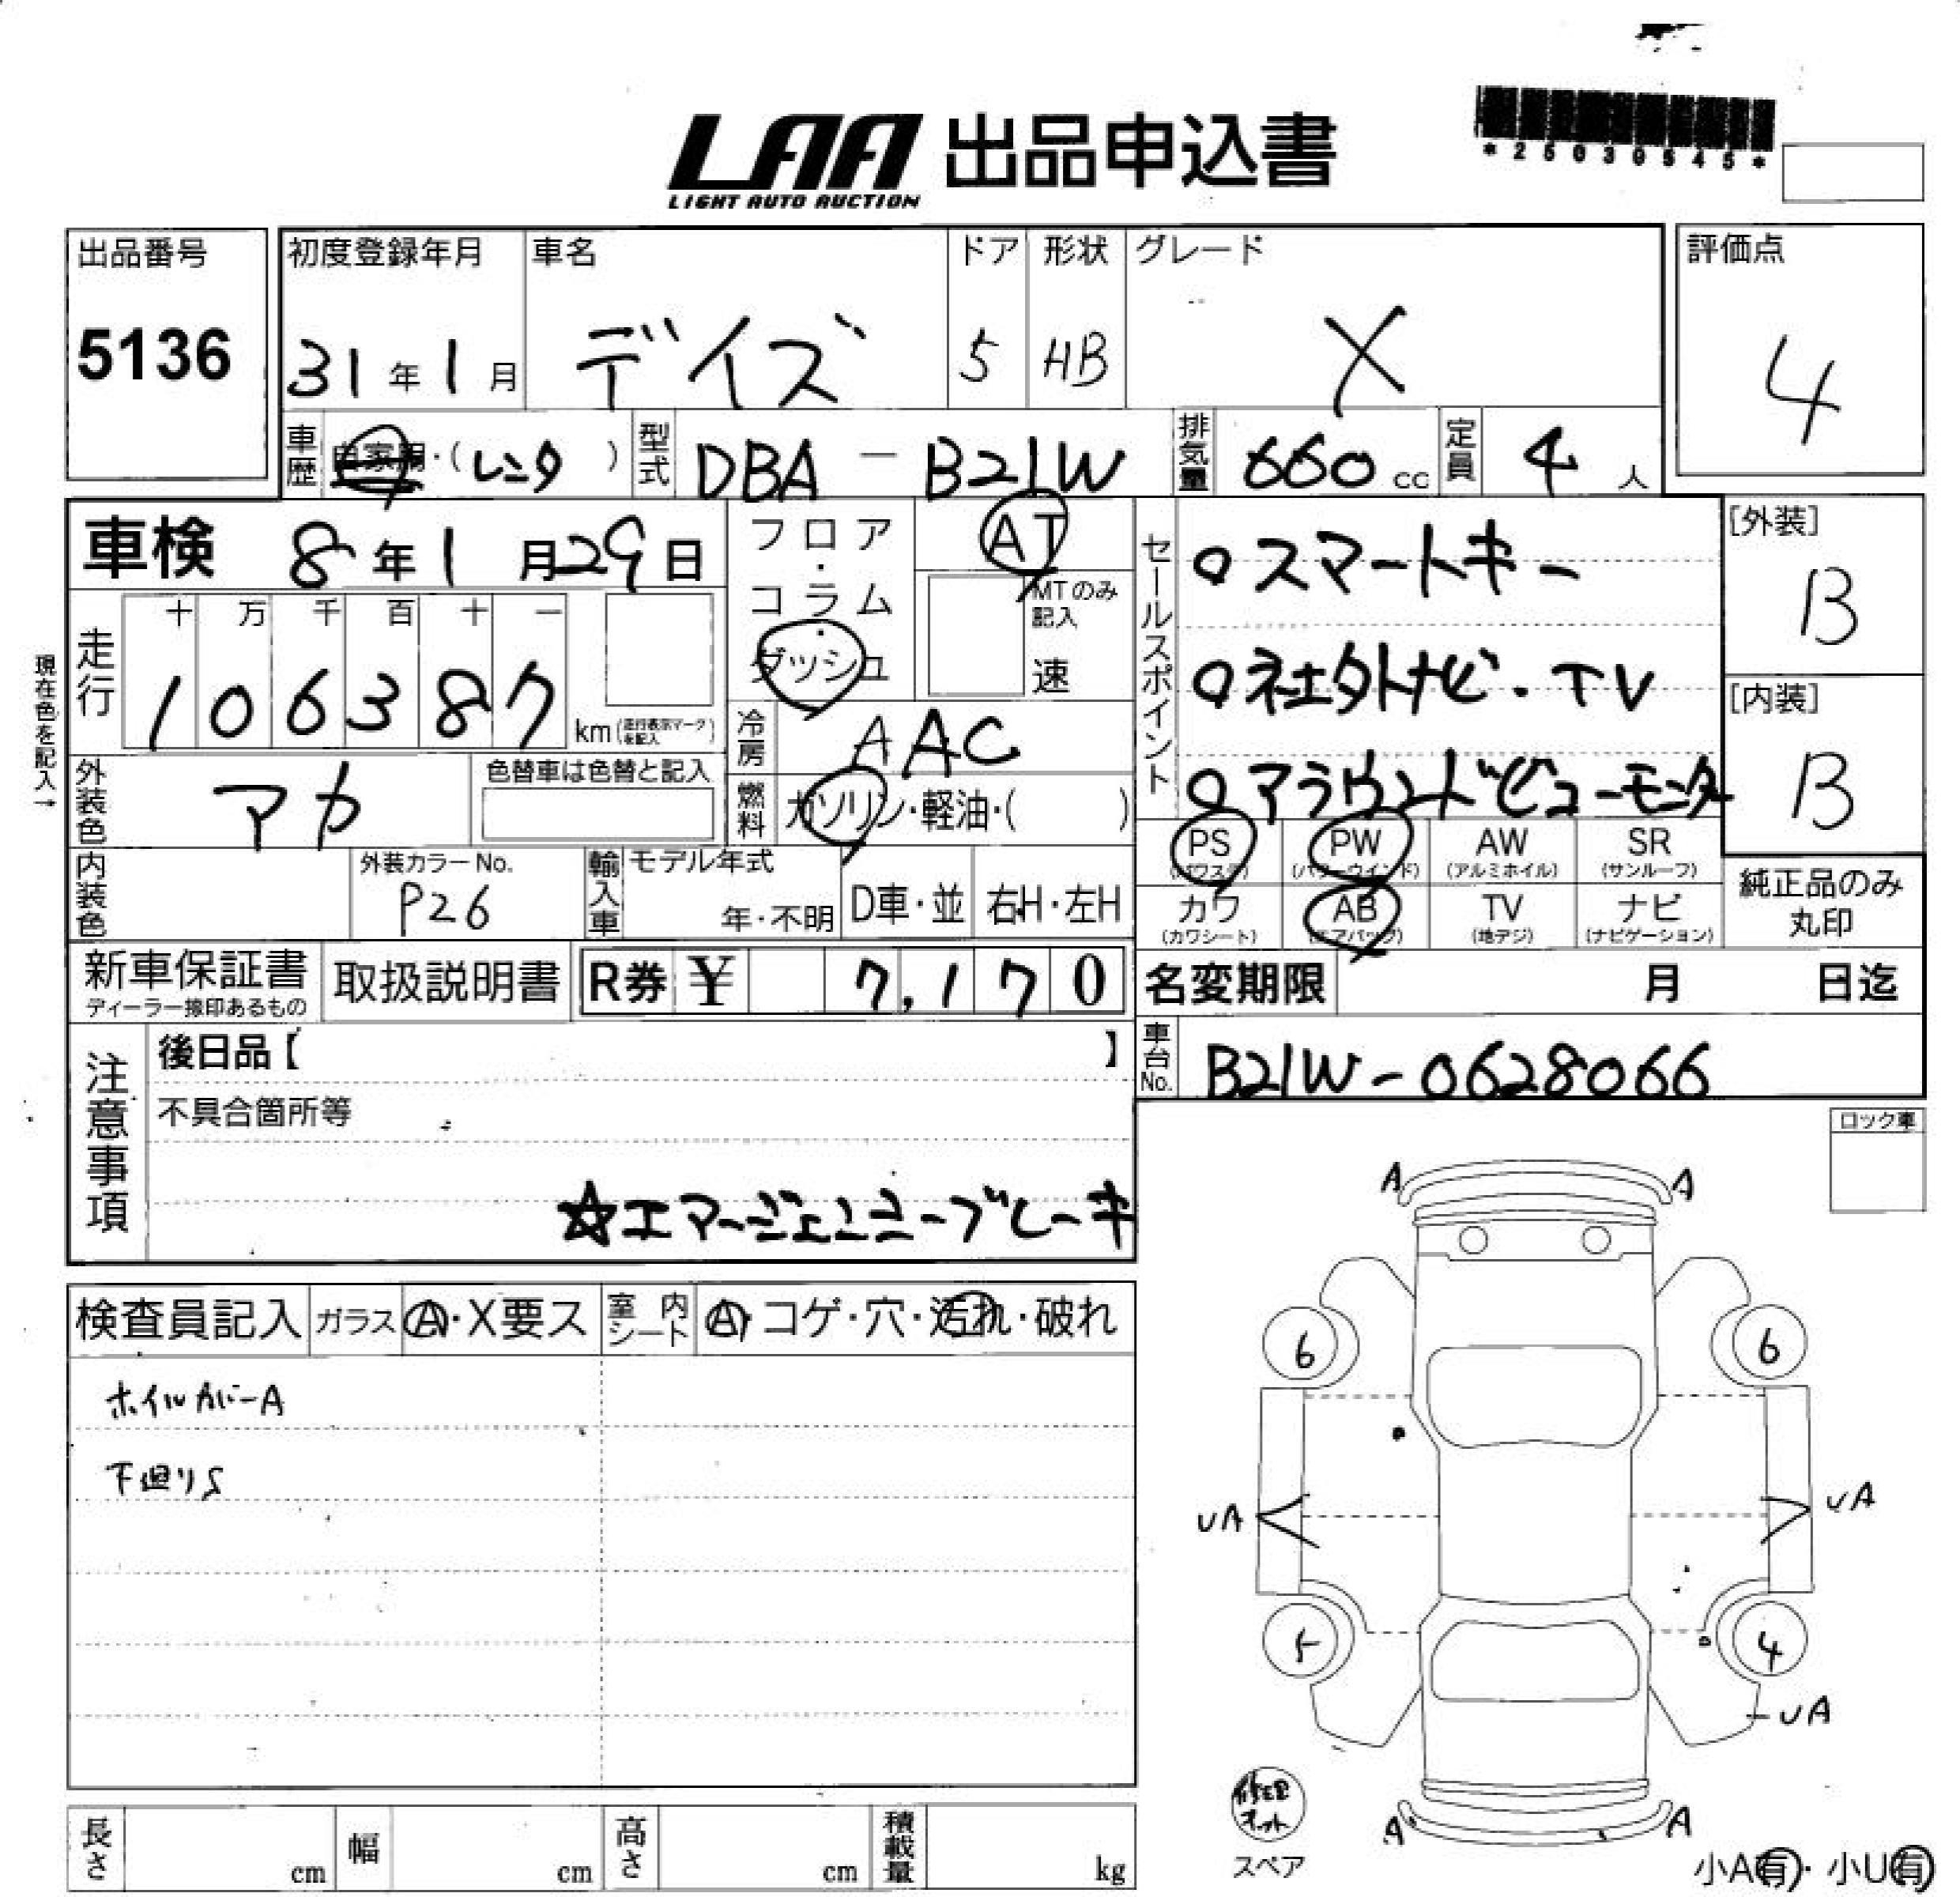 *25030545*
LAA 出品申込書
LIGHT AUTO AUCTION
出品番号
5136
初度登録年月
31年1月
車名
デイズ
ドア
5
形状
HB
グレード
X
評価点
4
車歴
自家用・(レンタ)
型式
DBA-B21W
排気量
660cc
定員
4人
車検 8年1月29日
フロア・コラム・ダッシュ
AT
MTのみ記入
速
セールスポイント
○スマートキー
○社外ナビ・TV
○アラウンドビューモニター
[外装]
B
[内装]
B
現在色を記入→
走行
十 万 千 百 十 一
1 0 6 3 8 7
km(走行表示マークを記入)
冷房
AAC
外装色
アカ
色替車は色替と記入
燃料
ガソリン・軽油・( )
PS
(パワステ)
PW
(パワーウインド)
AW
(アルミホイル)
SR
(サンルーフ)
カワ
(カワシート)
AB
(エアバッグ)
TV
(地デジ)
ナビ
(ナビゲーション)
純正品のみ
丸印
内装色
外装カラーNo.
P26
輸入車
モデル年式
年・不明
D車・並
右H・左H
新車保証書
ディーラー捺印あるもの
取扱説明書
R券 ¥ 7,170
名変期限 月 日迄
車台No.
B21W-0628066
注意事項
後日品【 】
不具合箇所等
☆エマージェンシーブレーキ
ロック車
検査員記入
ガラス
A・X要ス
室内シート
A・コゲ・穴・汚れ・破れ
ホイルカバーA
下廻りS
A A
6 6
UA UA
5 4
UA
A A
修理キット
スペア
小A有・小U有
長さ cm
幅 cm
高さ cm
積載量 kg